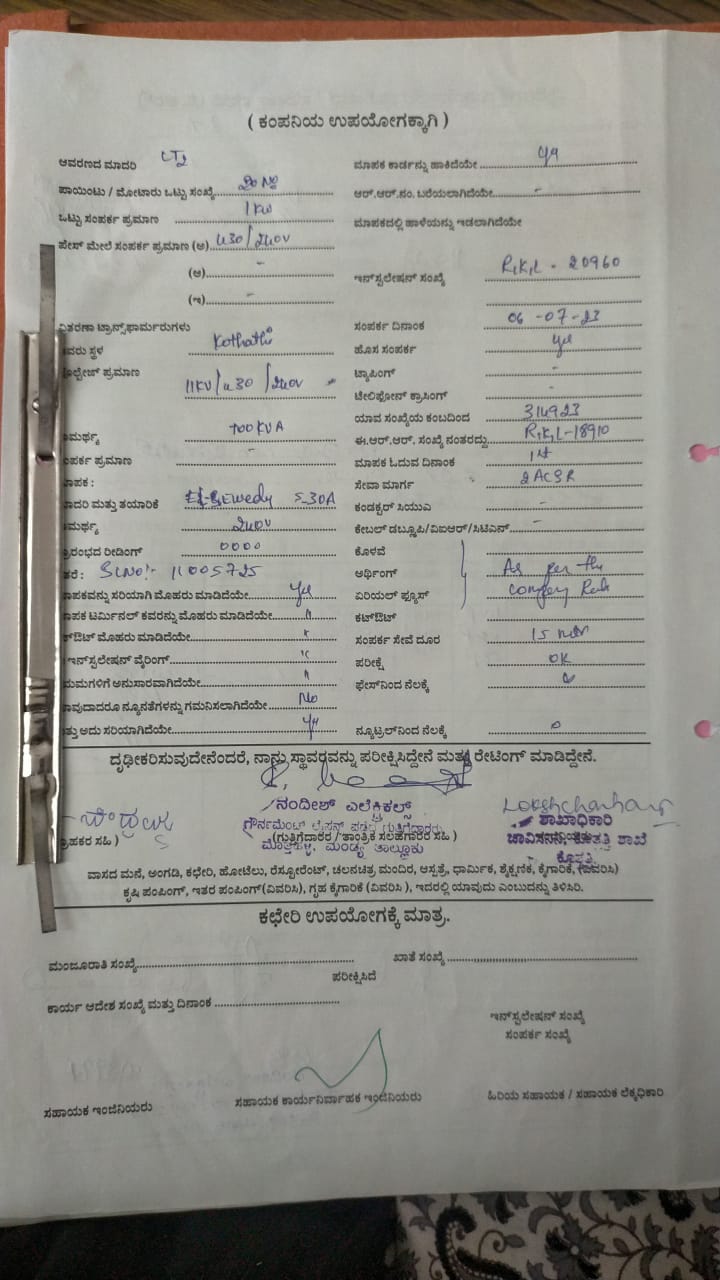 ( ಕಂಪನಿಯ ಉಪಯೋಗಕ್ಕಾಗಿ )
ಆವರಣದ ಮಾದರಿ LT2 ಮಾಪಕ ಕಾರ್ಡನ್ನು ಹಾಕಿದೆಯೇ
ಪಾಯಿಂಟು / ಮೋಟಾರು ಒಟ್ಟು ಸಂಖ್ಯೆ ಆರ್.ಆರ್.ನಂ. ಬರೆಯಲಾಗಿದೆಯೇ -
ಒಟ್ಟು ಸಂಪರ್ಕ ಪ್ರಮಾಣ 1 KW ಮಾಪಕದಲ್ಲಿ ಹಾಳೆಯನ್ನು ಇಡಲಾಗಿದೆಯೇ
ಫೇಸ್ ಮೇಲೆ ಸಂಪರ್ಕ ಪ್ರಮಾಣ (ಅ) 430/240V
(ಆ) - ಇನ್‌ಸ್ಟಲೇಷನ್ ಸಂಖ್ಯೆ R,K,L - 20960
(ಇ) -
ವಿತರಣಾ ಟ್ರಾನ್ಸ್‌ಫಾರ್ಮರುಗಳು ಸಂಪರ್ಕ ದಿನಾಂಕ 06-07-23
ಸ್ಥಳ Kothathi ಹೊಸ ಸಂಪರ್ಕ yes
ಪ್ರಮಾಣ 11KV/430/240V ಟ್ಯಾಪಿಂಗ್ -
ಟೆಲಿಫೋನ್ ಕ್ರಾಸಿಂಗ್ -
100 KVA ಯಾವ ಸಂಖ್ಯೆಯ ಕಂಬದಿಂದ 314923
ಈ.ಆರ್.ಆರ್. ಸಂಖ್ಯೆ ನಂತರದ್ದು R,K,L-18910
ಪ್ರಮಾಣ - ಮಾಪಕ ಓದುವ ದಿನಾಂಕ 1st
ಸೇವಾ ಮಾರ್ಗ 2 ACSR
ಮತ್ತು ತಯಾರಿಕೆ 5-30A ಕಂಡಕ್ಟರ್ ಸಿಯುಎ -
240V ಕೇಬಲ್ ಡಬ್ಲೂಪಿ/ವಿಐಆರ್/ಸಿಟಿಎಸ್ -
ರೀಡಿಂಗ್ 0000 ಕೊಳವೆ
Sl No:- 11005725 ಅರ್ಥಿಂಗ್ As per the
ಸರಿಯಾಗಿ ಮೊಹರು ಮಾಡಿದೆಯೇ yes ಏರಿಯಲ್ ಫ್ಯೂಸ್ company Rule
ಟರ್ಮಿನಲ್ ಕವರನ್ನು ಮೊಹರು ಮಾಡಿದೆಯೇ " ಕಟ್‌ಔಟ್
ಮೊಹರು ಮಾಡಿದೆಯೇ " ಸಂಪರ್ಕ ಸೇವೆ ದೂರ 15 mtr
ಇನ್‌ಸ್ಟಲೇಷನ್ ವೈರಿಂಗ್ " ಪರೀಕ್ಷೆ OK
ಅನುಸಾರವಾಗಿದೆಯೇ " ಫೇಸ್‌ನಿಂದ ನೆಲಕ್ಕೆ
ನ್ಯೂನತೆಗಳನ್ನು ಗಮನಿಸಲಾಗಿದೆಯೇ No
ಅದು ಸರಿಯಾಗಿದೆಯೇ yes ನ್ಯೂಟ್ರಲ್‌ನಿಂದ ನೆಲಕ್ಕೆ 0
ದೃಢೀಕರಿಸುವುದೇನೆಂದರೆ, ನಾನು ಸ್ಥಾವರವನ್ನು ಪರೀಕ್ಷಿಸಿದ್ದೇನೆ ಮತ್ತು ರೇಟಿಂಗ್ ಮಾಡಿದ್ದೇನೆ.
ನಂದೀಶ್ ಎಲೆಕ್ಟ್ರಿಕಲ್ಸ್
ಶಾಖಾಧಿಕಾರಿ
(ಗುತ್ತಿಗೆದಾರರ / ತಾಂತ್ರಿಕ ಸಲಹಗಾರರ ಸಹಿ)
ಮಂಡ್ಯ ತಾಲ್ಲೂಕು
ವಾಸದ ಮನೆ, ಅಂಗಡಿ, ಕಛೇರಿ, ಹೋಟೆಲು, ರೆಸ್ಟೋರೆಂಟ್, ಚಲನಚಿತ್ರ ಮಂದಿರ, ಆಸ್ಪತ್ರೆ, ಧಾರ್ಮಿಕ, ಶೈಕ್ಷಣಿಕ, ಕೈಗಾರಿಕೆ, (ವಿವರಿಸಿ)
ಕೃಷಿ ಪಂಪಿಂಗ್, ಇತರ ಪಂಪಿಂಗ್(ವಿವರಿಸಿ), ಗೃಹ ಕೈಗಾರಿಕೆ (ವಿವರಿಸಿ ), ಇದರಲ್ಲಿ ಯಾವುದು ಎಂಬುದನ್ನು ತಿಳಿಸಿರಿ.
ಕಛೇರಿ ಉಪಯೋಗಕ್ಕೆ ಮಾತ್ರ.
ಮಂಜೂರಾತಿ ಸಂಖ್ಯೆ ಖಾತೆ ಸಂಖ್ಯೆ
ಪರೀಕ್ಷಿಸಿದೆ
ಕಾರ್ಯ ಆದೇಶ ಸಂಖ್ಯೆ ಮತ್ತು ದಿನಾಂಕ
ಇನ್‌ಸ್ಟಲೇಷನ್ ಸಂಖ್ಯೆ
ಸಂಪರ್ಕ ಸಂಖ್ಯೆ
ಸಹಾಯಕ ಇಂಜಿನಿಯರು ಸಹಾಯಕ ಕಾರ್ಯನಿರ್ವಾಹಕ ಇಂಜಿನಿಯರು ಹಿರಿಯ ಸಹಾಯಕ / ಸಹಾಯಕ ಲೆಕ್ಕಧಿಕಾರಿ